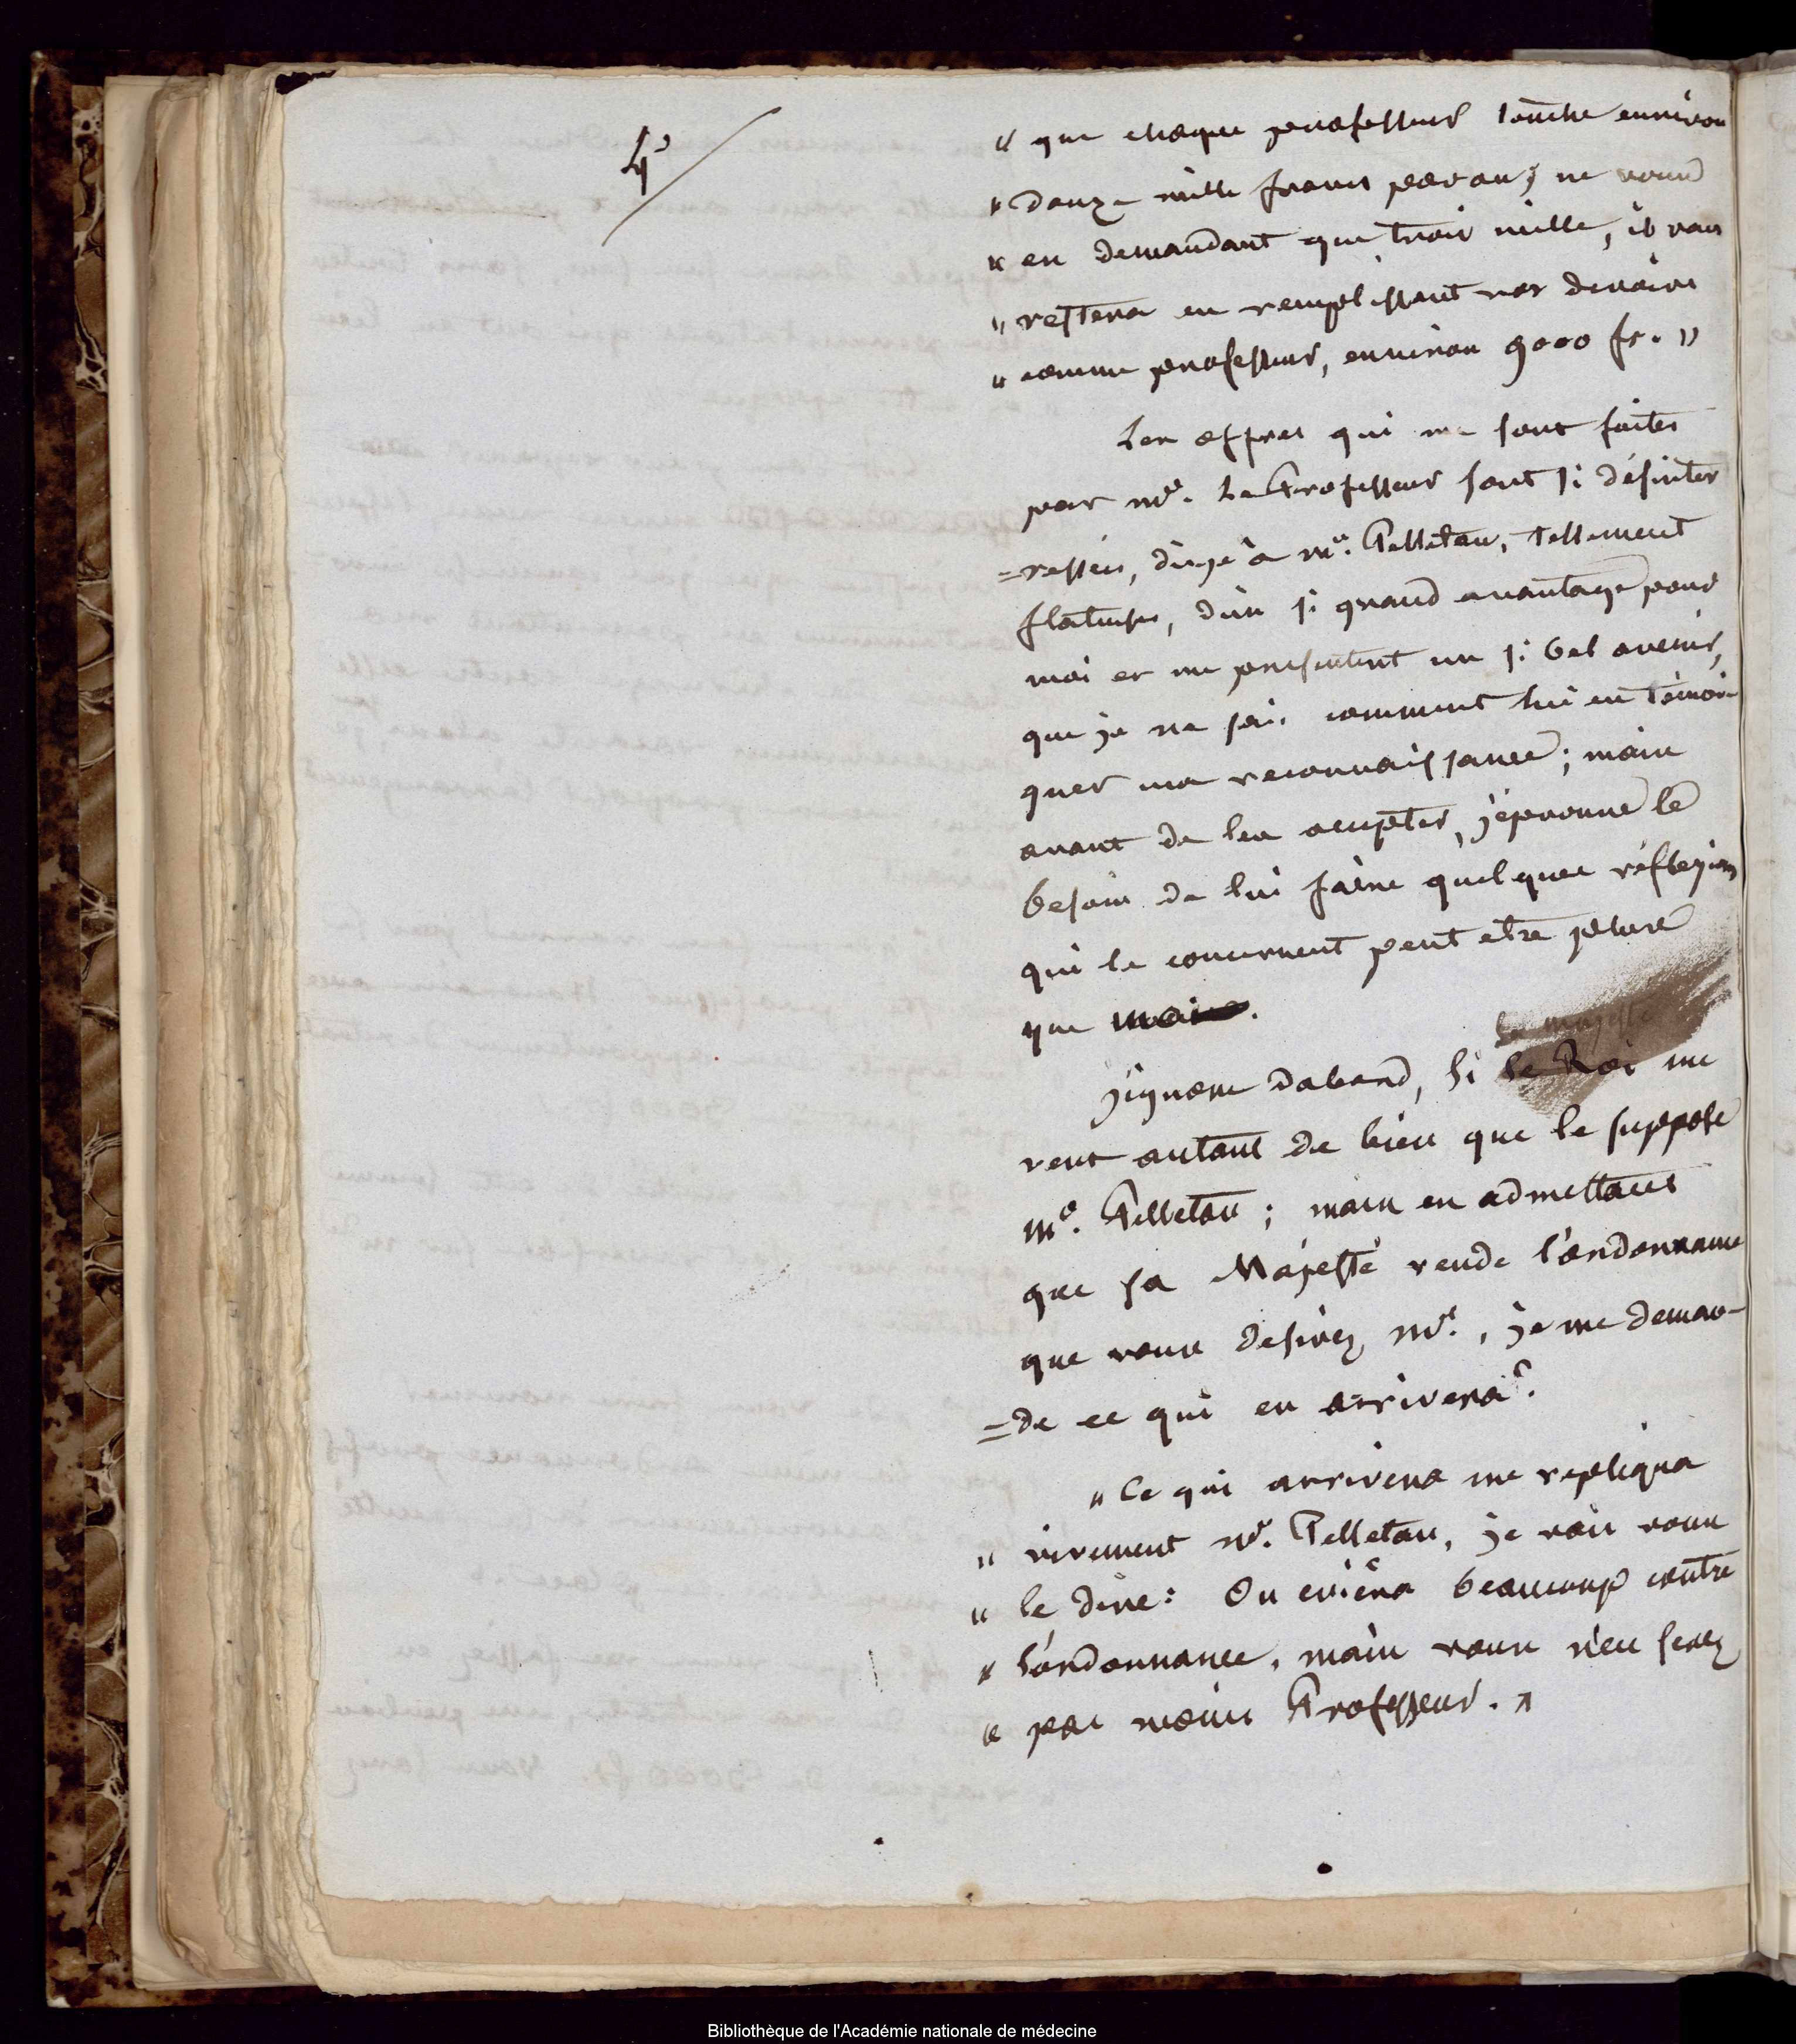 4°
" que chaque professeur touche environ
" douze mille francs par an; ne vous
" en demandant que trois mille, il vous
" restera en remplissant vos devoirs
" comme professeur, environ 9000 fr. "
Les offres qui me sont faites
par Mr. Le Professeur sont si désinter
=ressées, dis-je à Mr. Pelletan, tellement
flateuses, d'un si grand avantage pour
moi et me presentent un si bel avenir,
que je ne sais comment lui en témoi-
gner ma reconnaissance; mais
avant de les accepter, j'éprouve le
besoin de lui faire quelques réflexions
qui le concernent peut etre plus
que moi.
sa majesté
J'ignore dabord, si le Roi me
veut autant de bien que le suppose
Mr. Pelletan; mais en admettant
que sa Majesté rende l'ordonnance
que vous desirez Mr., je me deman-
=de ce qui en arrivera?
" Ce qui arrivera me repliqua
" vivement Mr. Pelletan, je vais vous
" le dire: On criera beaucoup contre
" l'ordonnance, mais vous n'en serez
" pas moins Professeur. "
Bibliothèque de l'Académie nationale de médecine